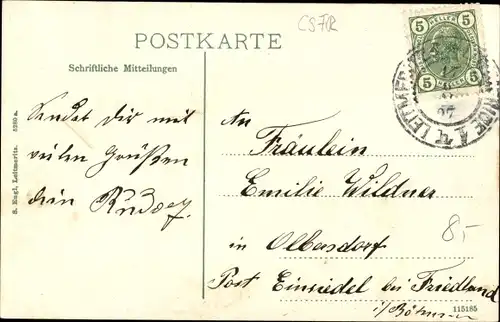 CSFOR
POSTKARTE
Schriftliche Mitteilungen
5 HELLER 5
5 HELLER 5
Sendet Dir mit
vielen Grüßen
dein Rudolf
An
Fräulein
Emilie Wildner
in Olbersdorf
Post Einsiedel bei Friedland
i/Böhmen
8.-
S. Engl, Leitmeritz. 5280 a.
115185